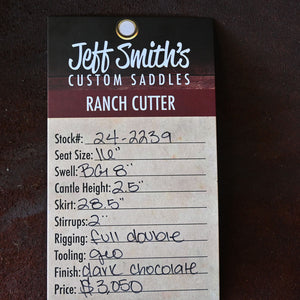 Jeff Smith's
CUSTOM SADDLES
RANCH CUTTER
Stock#: 24-2239
Seat Size: 16"
Swell: BG 8"
Cantle Height: 2.5"
Skirt: 28.5"
Stirrups: 2"
Rigging: full double
Tooling: geo
Finish: dark chocolate
Price: $3,050